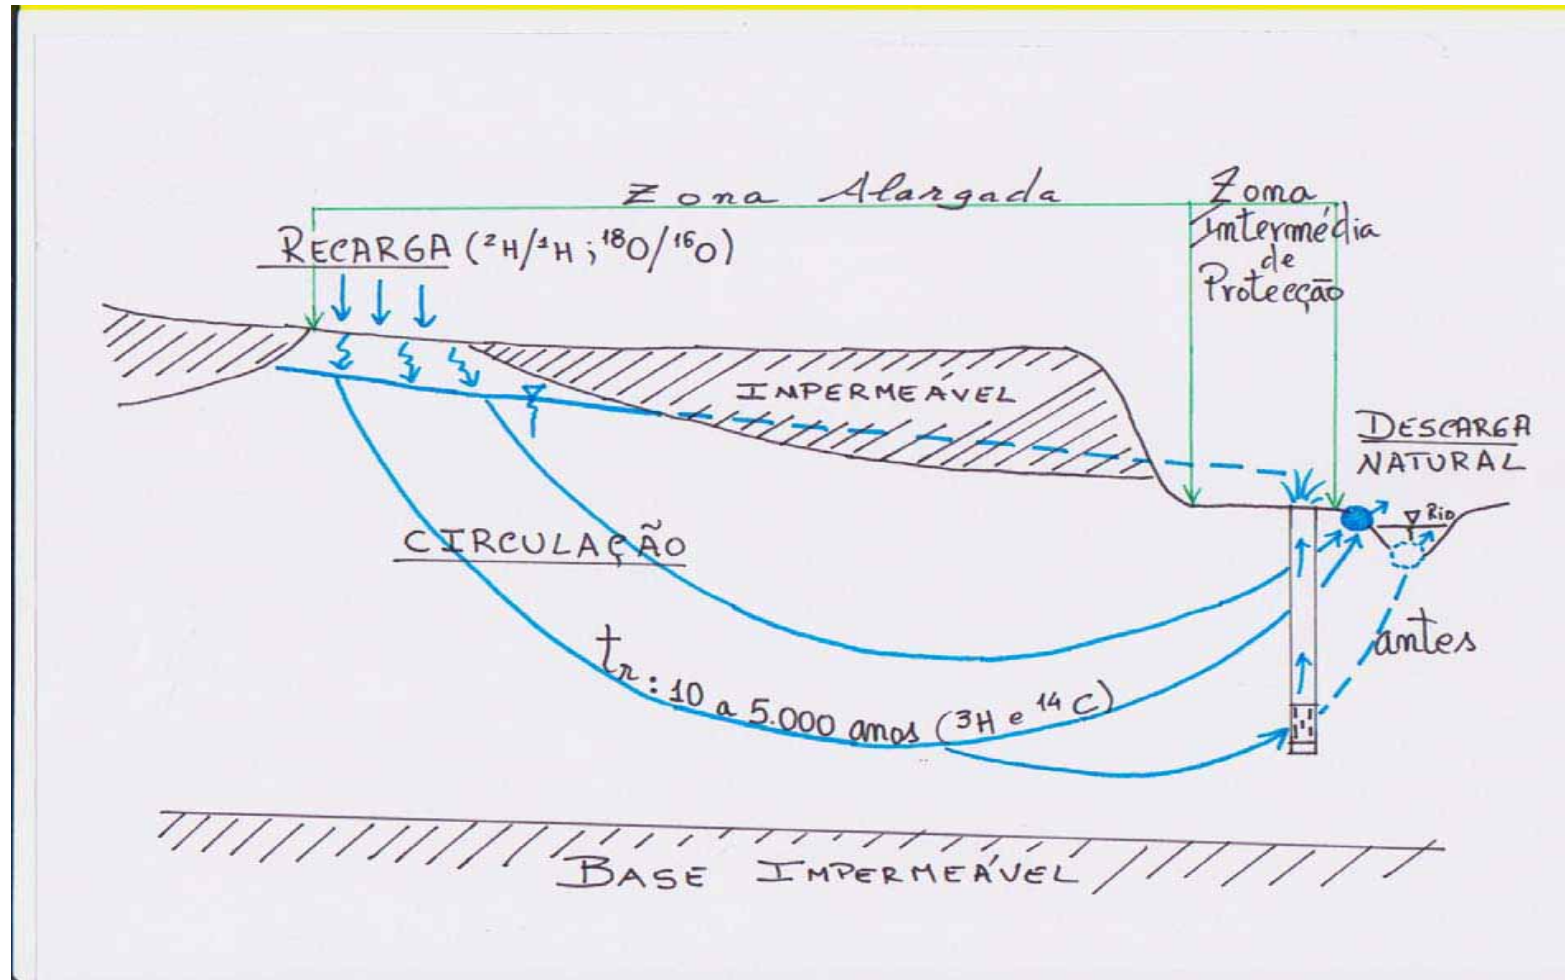 Zona Alargada
Zona
Intermédia
de
Protecção
RECARGA (²H/¹H ; ¹⁸O/¹⁶O)
IMPERMEÁVEL
DESCARGA
NATURAL
Rio
CIRCULAÇÃO
antes
tr : 10 a 5.000 anos (³H e ¹⁴C)
BASE IMPERMEÁVEL